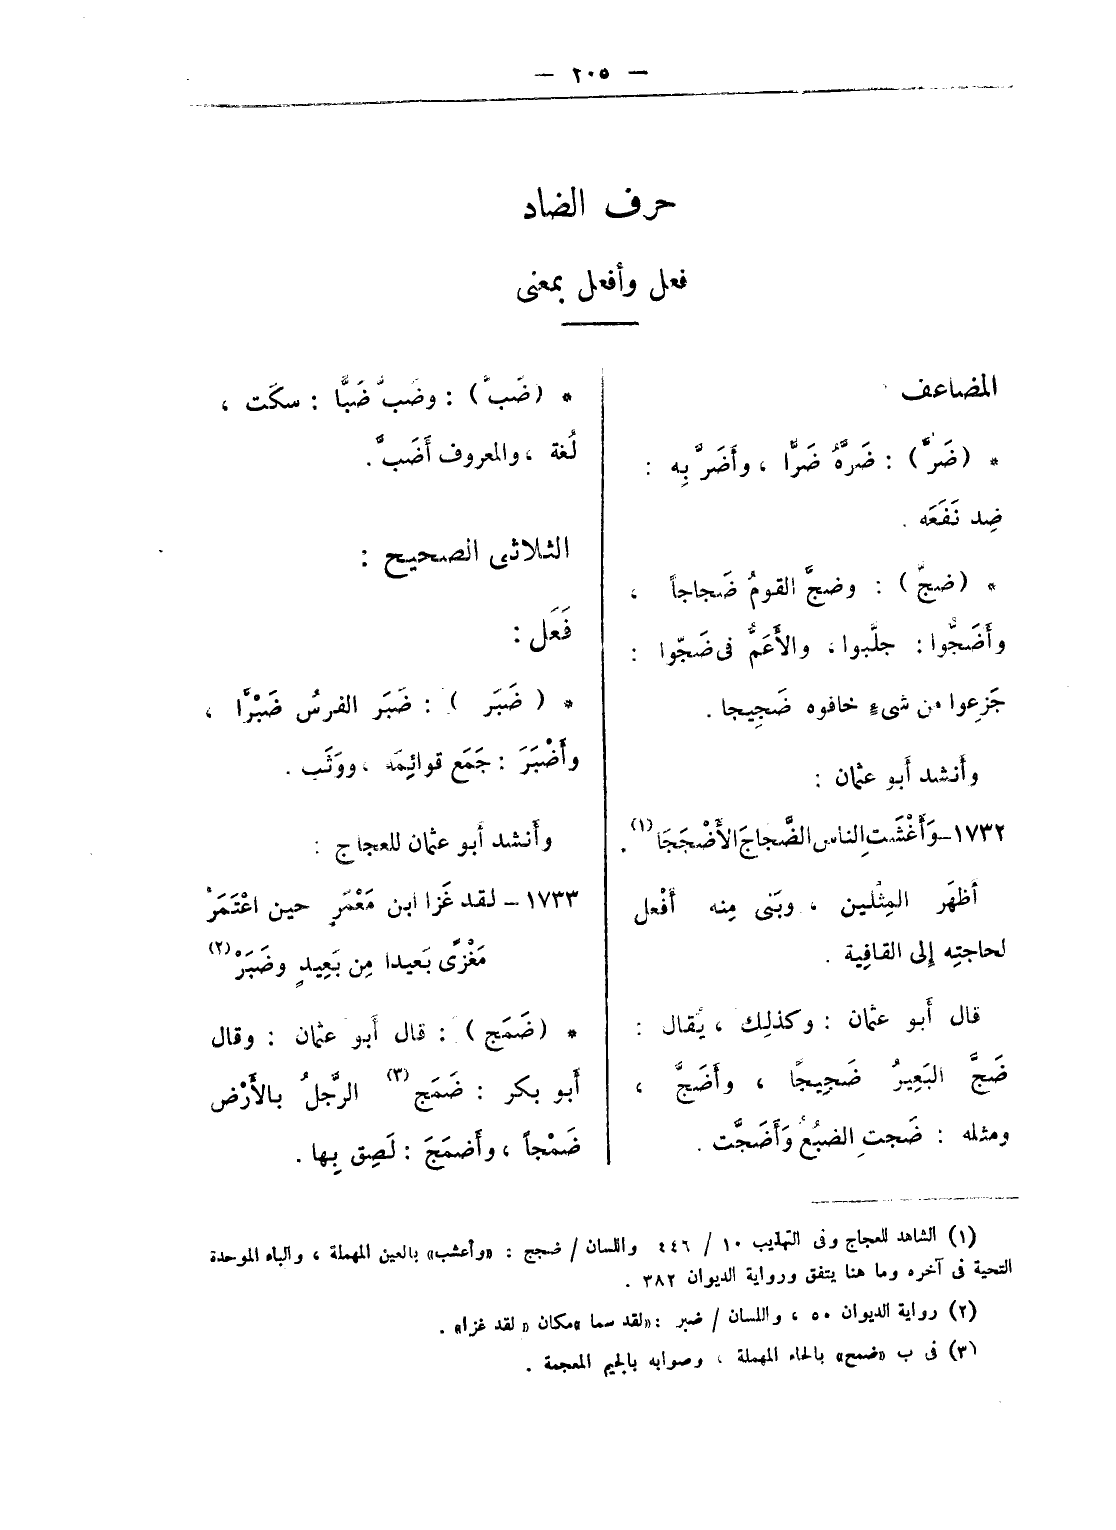 — ٢٠٥ —
حرف الضاد
فعل وأفعل بمعنى
المضاعف
* (ضَرَّ) : ضَرَّهُ ضَرًّا ، وأَضَرَّ بِه :
ضِد نَفَعَه .
* (ضجّ) : وضجَّ القومُ ضَجاجاً ،
وأَضَجُّوا : جلَّبوا ، والأَعَمُّ فى ضَجّوا :
جَزِعوا من شىءٍ خافوه ضَجِيجا .
وأَنشد أَبو عثمان :
١٧٣٢ – وَأَغْشَتِ الناس الضَّجاجَ الأَضْجَجَا (١) .
أَظهَر المِثْلين ، وبَنى مِنه أَفْعل
لحاجتِه إِلى القافِية .
قال أَبو عثمان : وكذلِك ، يُقال :
ضَجَّ البَعِيرُ ضَجِيجًا ، وأَضَجَّ ،
ومثله : ضَجتِ الضبُعُ وَأَضَجَّت .
* (ضَبَّ) : وضَبَّ ضَبًّا : سكَت ،
لُغة ، والمعروف أَضَبَّ .
الثلاثى الصحيح :
فَعَل :
* ( ضَبَر ) : ضَبَر الفرسُ ضَبْرًا ،
وأَضْبَرَ : جَمَع قوائِمَه ، ووَثَب .
وأَنشد أَبو عثمان للعجاج :
١٧٣٣ – لقد غَزا ابن مَعْمَرٍ حين اعْتَمَرْ
مَغْزًى بَعيدا مِن بَعِيدٍ وضَبَرْ (٢)
* (ضَمَج) : قال أَبو عثمان : وقال
أَبو بكر : ضَمَج (٣) الرَّجلُ بالأَرْض
ضَمْجاً ، وأَضمَجَ : لَصِق بِها .
(١) الشاهد للعجاج وفى التهذيب ١٠ / ٤٤٦ واللسان / ضجج : «وأعشب» بالعين المهملة ، والباء الموحدة
التحية فى آخره وما هنا يتفق ورواية الديوان ٣٨٢ .
(٢) رواية الديوان ٥٠ ، واللسان / ضبر : «لقد سما» مكان « لقد غزا» .
(٣) فى ب «ضمح» بالحاء المهملة ، وصوابه بالجيم المعجمة .